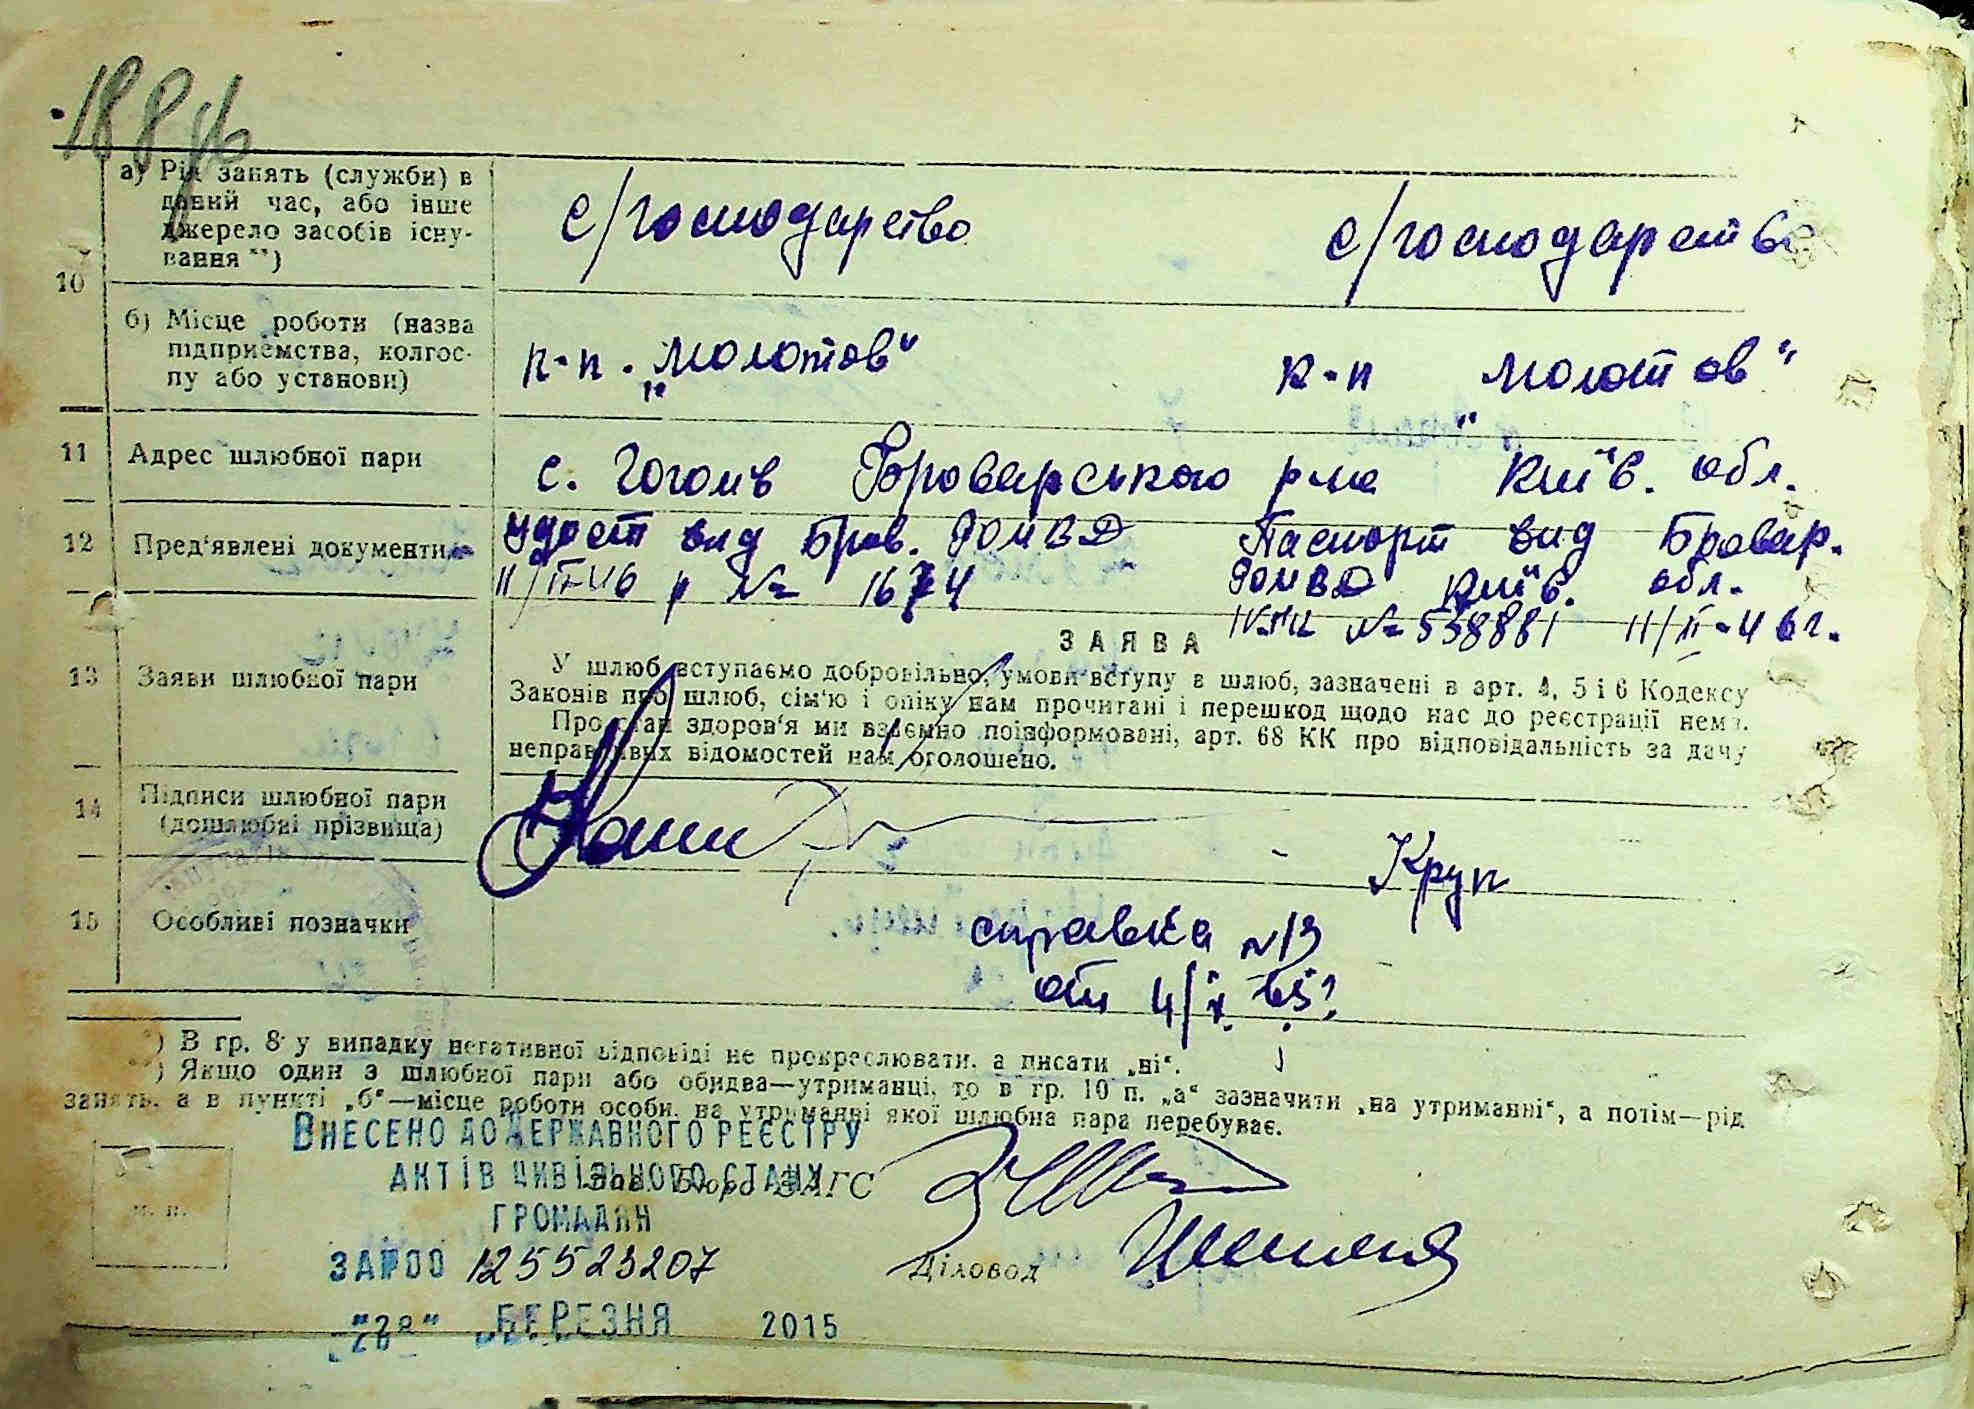 188
а) Рід занять (служби) в
даний час, або інше
джерело засобів існу-
вання **)
с/господарство
с/господарство
10
б) Місце роботи (назва
підприємства, колгос-
пу або установи)
к-п. „Молотов"
к-п „Молотов"
11 Адрес шлюбної пари
с. Гоголів Броварського р-на Київ. обл.
12 Пред'явлені документи
Удост вид Бров. РОМВД
11/II-46 р №
Паспорт вид Бровар.
РОМВД Київ. обл.
№ 558881 11/II-46 г.
13 Заяви шлюбної пари
ЗАЯВА
У шлюб вступаємо добровільно, умови вступу в шлюб, зазначені в арт. 4, 5 і 6 Кодексу
Законів про шлюб, сім'ю і опіку нам прочитані і перешкод щодо нас до реєстрації нема.
Про стан здоров'я ми взаємно поінформовані, арт. 68 КК про відповідальність за дачу
неправдивих відомостей нам оголошено.
14 Підписи шлюбної пари
(дошлюбні прізвища)
Круп
15 Особливі позначки
справка №13
от 4/
*) В гр. 8 у випадку негативної відповіді не прокреслювати, а писати „ні".
**) Якщо один з шлюбної пари або обидва—утриманці, то в гр. 10 п. „а" зазначити „на утриманні", а потім—рід
занять, а в пункті „б"—місце роботи особи, на утриманні якої шлюбна пара перебуває.
ВНЕСЕНО ДО ДЕРЖАВНОГО РЕЄСТРУ
АКТІВ ЦИВІЛЬНОГО СТАНУ
ГРОМАДЯН
Зав. Бюро ЗАГС
м. п.
ЗА №00 125523207
Діловод
"28" БЕРЕЗНЯ 2015